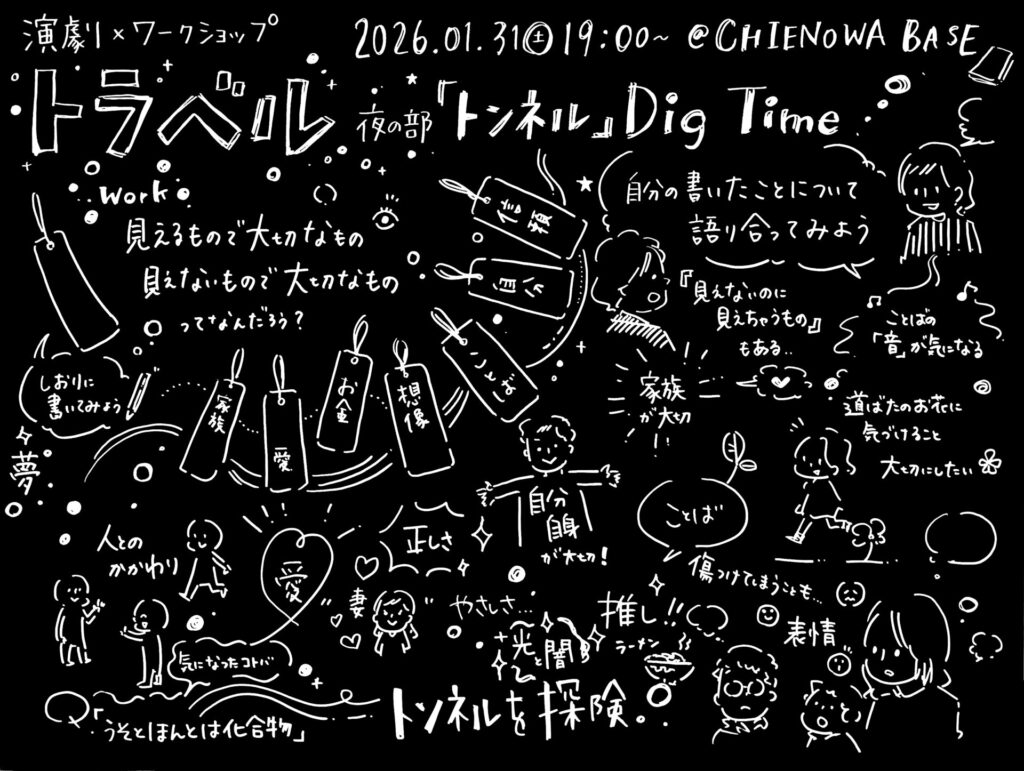 演劇×ワークショップ
2026.01.31㊏19:00~ @CHIENOWA BASE
トラベル 夜の部「トンネル」Dig Time
work
見えるもので大切なもの
見えないもので大切なもの
ってなんだろう?
しおりに
書いてみよう
夢
家族
愛
お金
想像
ことば
自分
信頼
自分の書いたことについて
語り合ってみよう
『見えないのに
見えちゃうもの』
もある..
家族
が大切
ことばの
「音」が気になる
道ばたのお花に
気づけること
大切にしたい
自分
自身
が大切!
ことば
傷つけてしまうことも...
人との
かかわり
愛
正しさ
"妻"
やさしさ...
光と闇
推し!!
ラーメン
表情
気になったコトバ
「うそとほんとは化合物」
トンネルを探険。